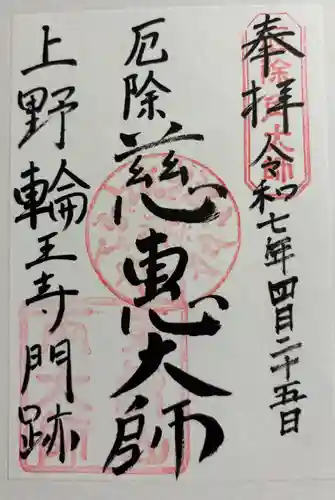 奉拝 令和七年四月二十五日
厄除 慈恵大師
上野輪王寺門跡